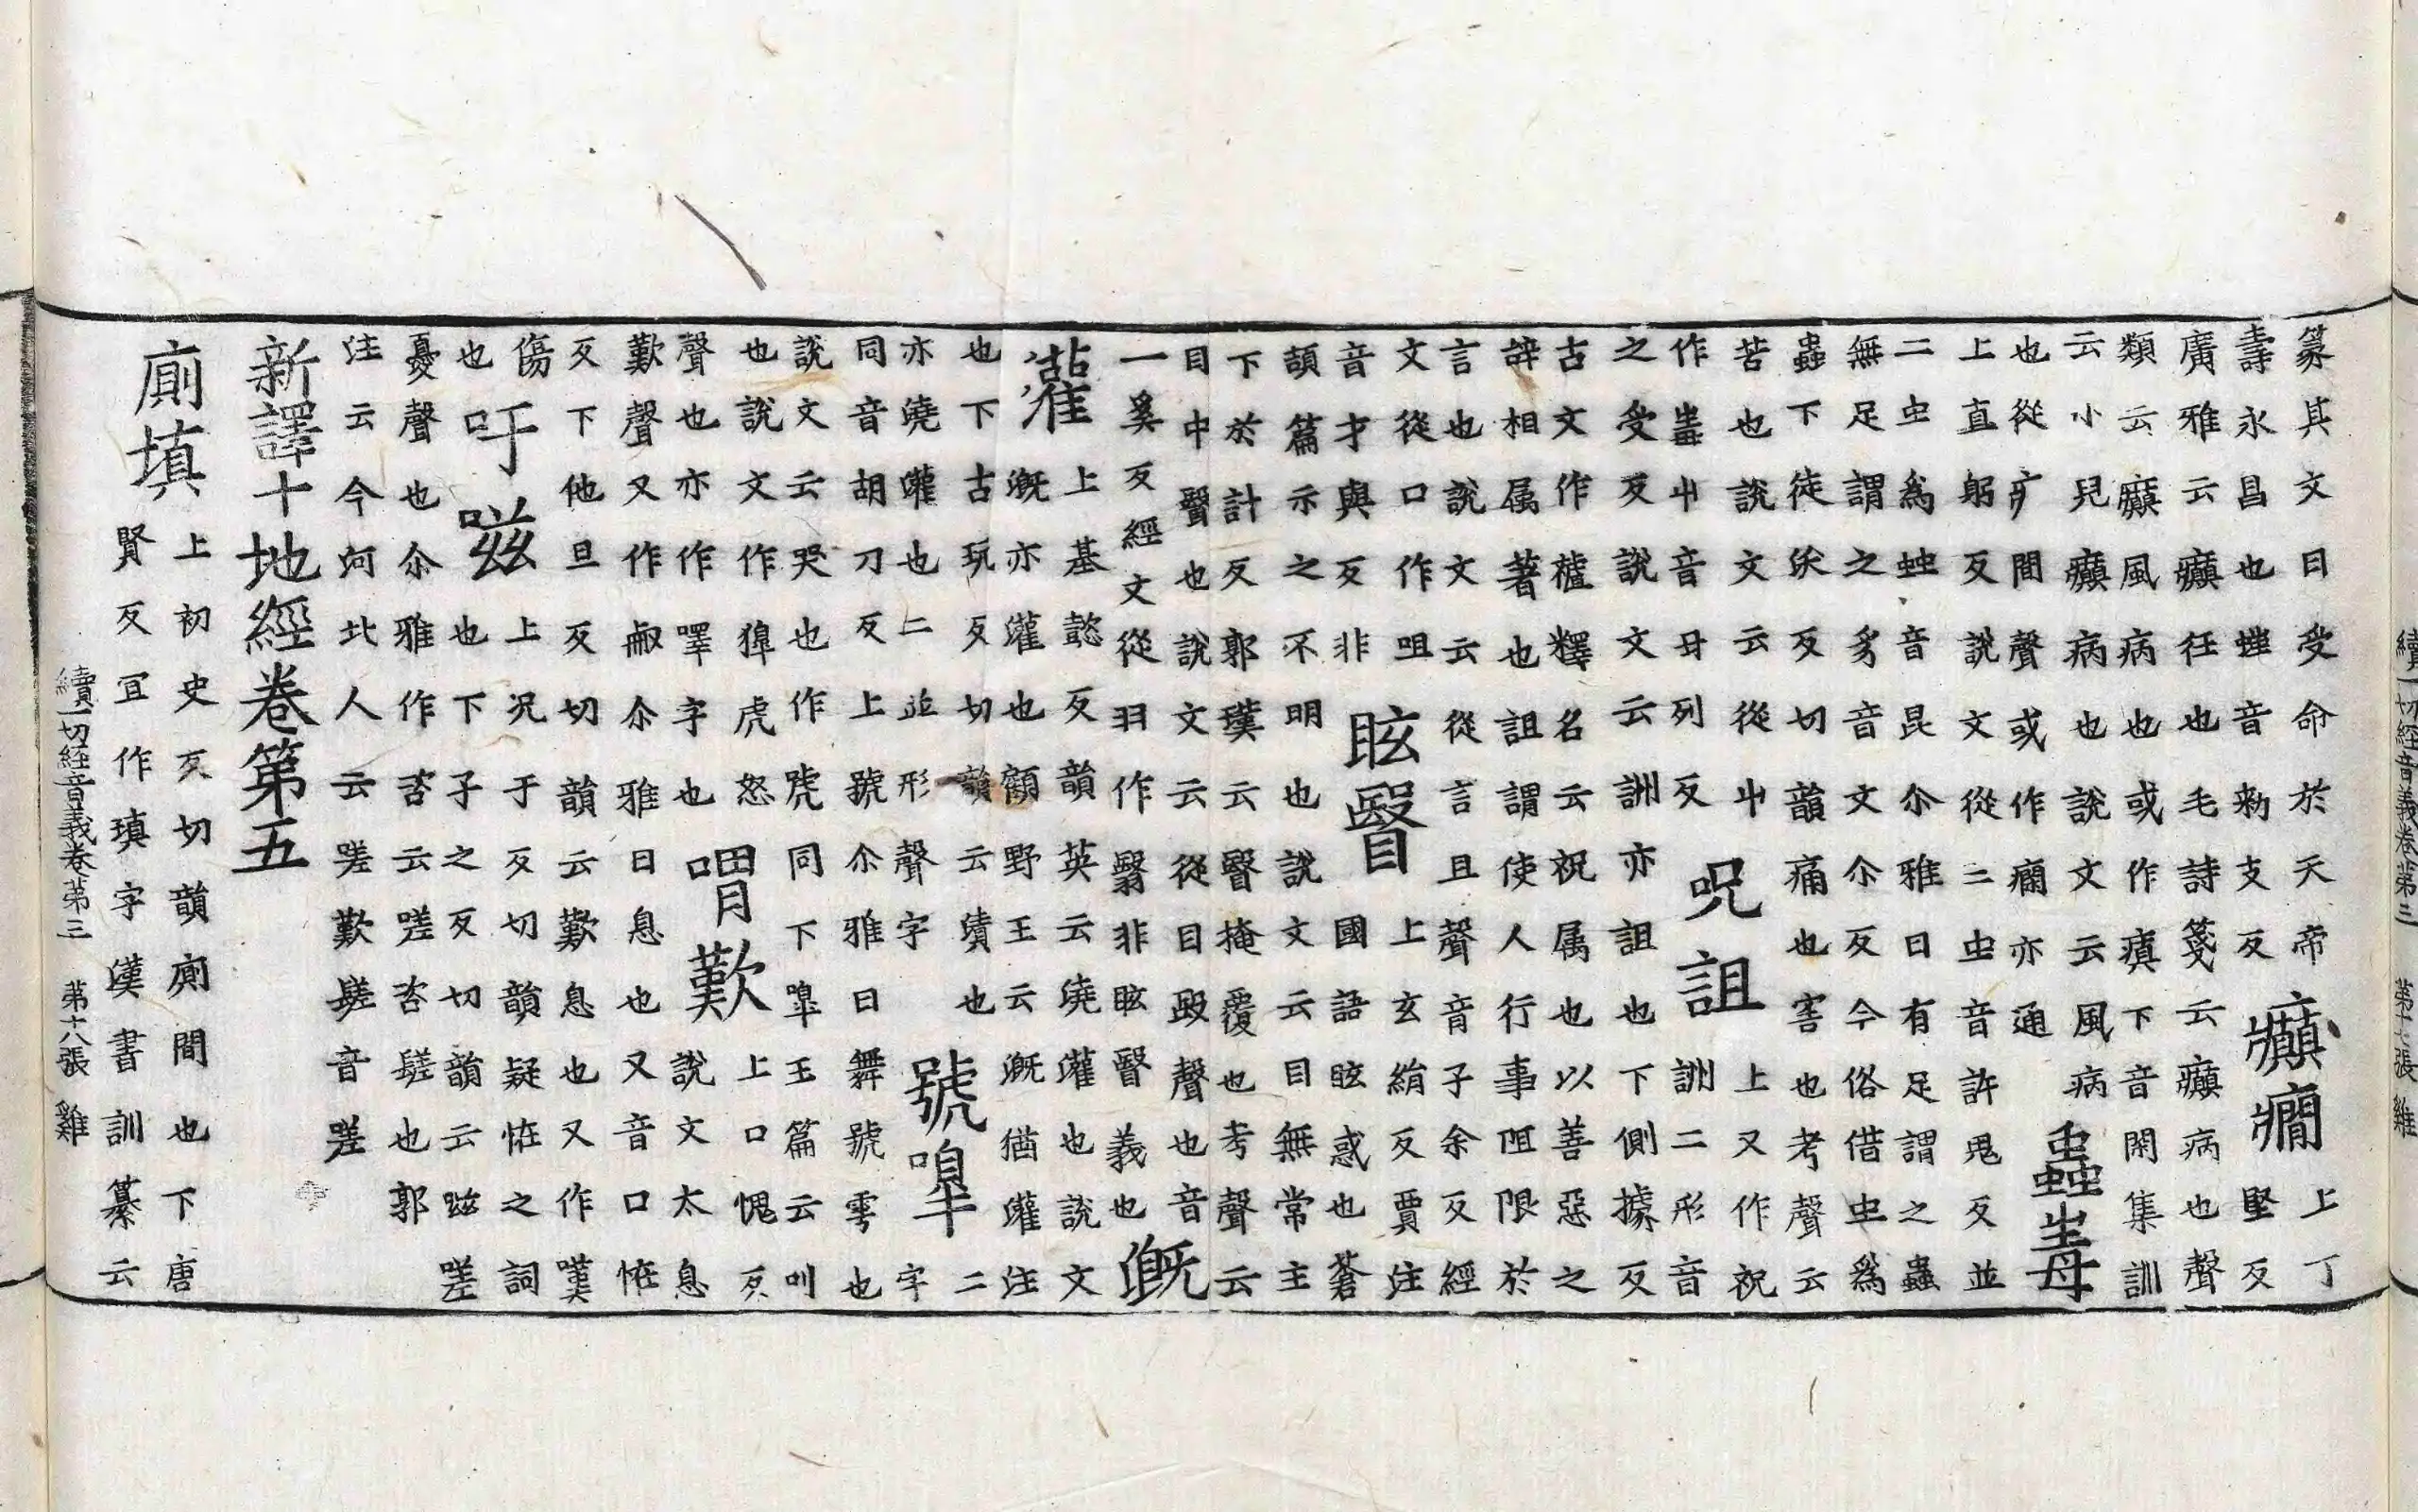 篆其文曰受命於天帝
壽永昌也螭音勑支反
癲癇
上丁
堅反
廣雅云癲狂也毛詩箋云癲病也聲
類云癲風病也或作瘨下音閑集訓
云小兒癲病也說文云風病
也從疒間聲或作癎亦通
蠱毒
上直躬反說文從二虫音許鬼反並
二虫爲䖵音昆尒雅曰有足謂之蟲
無足謂之豸音文尒反今俗借虫爲
蟲下徒沃反切韻痛也害也考聲云
苦也說文云從屮
作毒屮音丑列反
呪詛
上又作祝
訓二形音
之受反說文云訓亦詛也下側據反
古文作樝釋名云祝属也以善惡之
辝相属著也詛謂使人行事阻限於
言也說文云從言且聲音子余反經
文從口作咀
音才與反非
眩瞖
上玄絹反賈注
國語眩惑也蒼
頡篇示之不明也說文云目無常主
下於計反郭璞云瞖掩覆也考聲云
目中瞖也說文云從目殹聲也音
一奚反經文從羽作翳非眩瞖義也
溉灌
上基懿反韻英云澆灌也說文
溉亦灌也顧野王云溉猶灌注
也下古玩反切韻云漬也
亦澆灌也二並形聲字
號嘷
二字
同音胡刀反上號尒雅曰舞號雩也
說文云哭也作唬同下嘷玉篇云叫
也說文作獋虎怒
聲也亦作㘁字也
喟歎
上口愧反
說文太息
歎聲又作嘳尒雅曰息也又音口怪
反下他旦反切韻云歎息也又作嘆
傷
也
吁嗞
上況于反切韻疑怪之詞
也下子之反切韻云嗞嗟
憂聲也尒雅作咨云嗟咨𨲠也郭
注云今河北人云嗟歎𨲠音嗟
新譯十地經卷第五
廁填
上初史反切韻廁間也下唐
賢反冝作瑱字漢書訓纂云
續一切經音義卷第三 第十八張 雞
續一切經音義卷第三 第十七張 雞